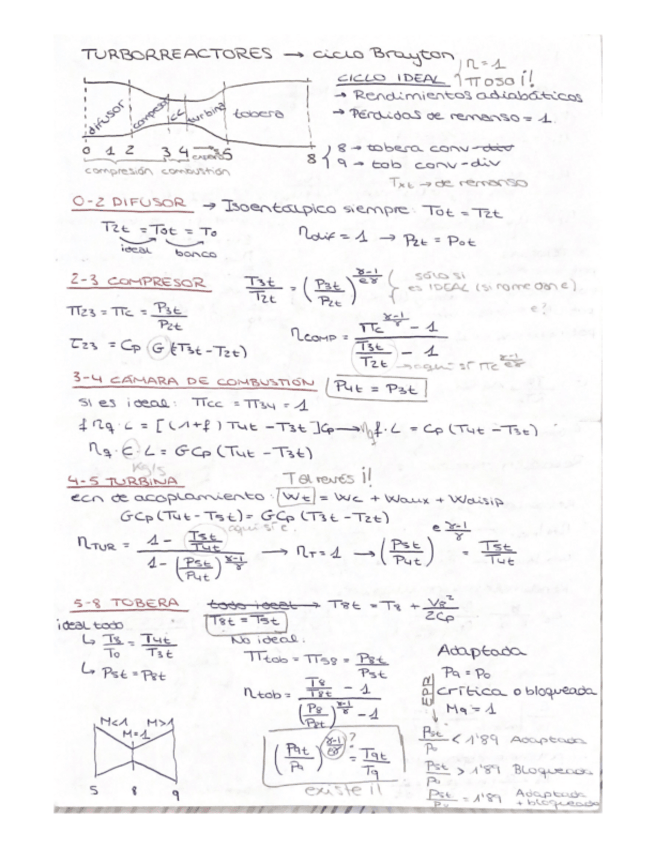 TURBORREACTORES → ciclo Brayton
η=1
CICLO IDEAL ↑ π 0 so i!
→ Rendimientos adiabáticos
→ Pérdidas de remanso = 1
difusor compresor CC turbina tobera
0 1 2 3 4 5 8
compresión combustión
8 → tobera conv-div
9 → tob conv-div
Txt → de remanso
0-2 DIFUSOR → Isoentálpico siempre: T0t = T2t
T2t = T0t = T0
ideal banco
ηdif = 1 → P2t = P0t
2-3 COMPRESOR T3t/T2t = (P3t/P2t)^(γ-1/eγ) sólo si es IDEAL (si no me dan e)
e?
π23 = πc = P3t/P2t
ηCOMP = (πc^(γ-1/γ) - 1)/(T3t/T2t - 1)
τ23 = Cp G (T3t - T2t)
aquí sí πc^(γ-1/eγ)
3-4 CÁMARA DE COMBUSTIÓN P4t = P3t
si es ideal: πcc = π34 = 1
f ηq · L = [(1+f) T4t - T3t] Cp → ηq f · L = Cp (T4t - T3t)
ηq · C · L = G Cp (T4t - T3t)
kg/s
4-5 TURBINA T al revés i!
ecn de acoplamiento: Wt = Wc + Waux + Wdisip
GCp (T4t - T5t) = GCp (T3t - T2t)
aquí sí e
ηTUR = (1 - T5t/T4t)/(1 - (P5t/P4t)^(γ-1/γ)) → ηT = 1 → (P5t/P4t)^(e γ-1/γ) = T5t/T4t
5-8 TOBERA todo ideal → T8t = T8 + V8²/2Cp
ideal todo T8t = T5t
↳ T8/T0 = T4t/T3t
No ideal:
↳ P5t = P8t
πtob = π58 = P8t/P5t
ηtob = (T8/T8t - 1)/((P8/P8t)^(γ-1/γ) - 1)
Adaptada
P9 = P0
crítica o bloqueada
M9 = 1
EPR
P5t/P0 < 1'89 Adaptada
P5t/P0 > 1'89 Bloqueada
P5t/P0 = 1'89 Adaptada + bloqueada
M<1 M>1
M=1
5 8 9
(P9t/P9)^(γ-1/eγ) = T9t/T9
?
existe i!